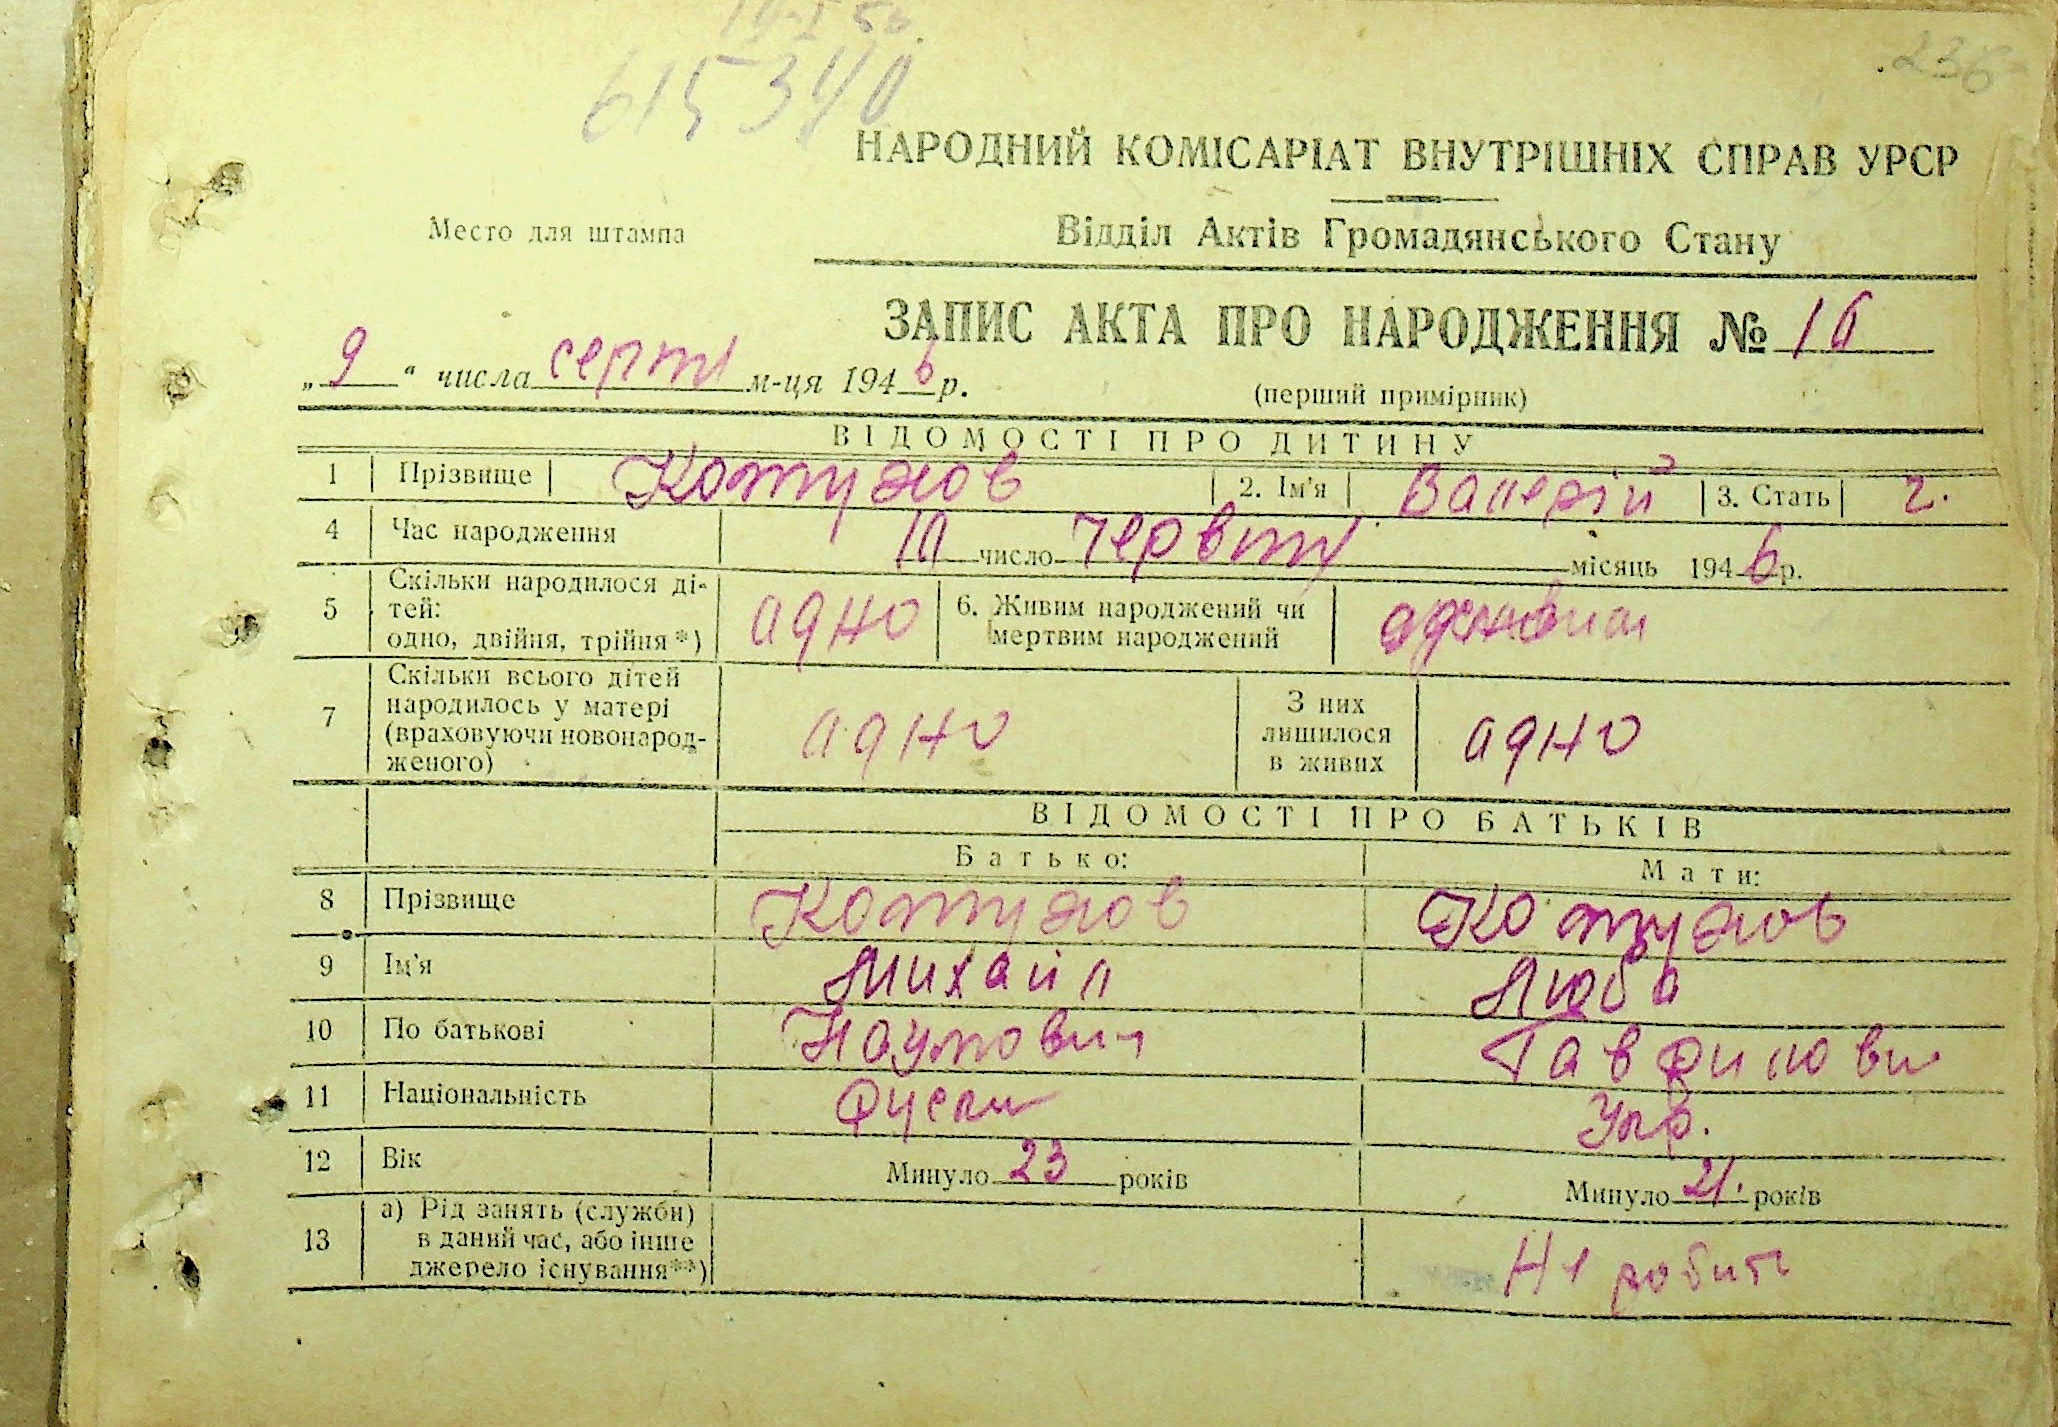 615340
236
НАРОДНИЙ КОМІСАРІАТ ВНУТРІШНІХ СПРАВ УРСР
Место для штампа
Відділ Актів Громадянського Стану
ЗАПИС АКТА ПРО НАРОДЖЕННЯ №
„ 9 “ числа серпня м-ця 194 6 р.
(перший примірник)
ВІДОМОСТІ ПРО ДИТИНУ
1 Прізвище Кожухов 2. Ім'я Валерій 3. Стать ч.
4 Час народження 10 число червня місяць 194 6 р.
5 Скільки народилося ді-
тей:
одно, двійня, трійня*) адно 6. Живим народжений чи
мертвим народжений
7 Скільки всього дітей
народилось у матері
(враховуючи новонарод-
женого) адно З них
лишилося
в живих адно
ВІДОМОСТІ ПРО БАТЬКІВ
Батько: Мати:
8 Прізвище Кожухов Кожухов
9 Ім'я Михаил Люба
10 По батькові Наумович Гаврилови
11 Національність Руски Укр.
12 Вік Минуло 23 років Минуло 21. років
13 а) Рід занять (служби)
в даний час, або інше
джерело існування**) Не робить